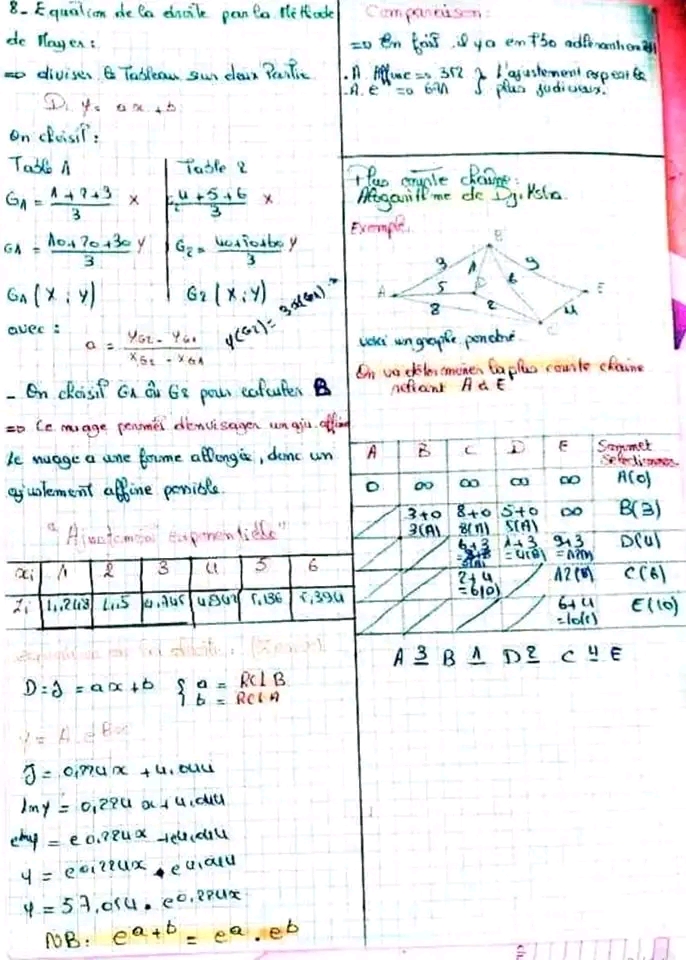 8- Equation de la droite par la Méthode
de Mayer :
=> diviser le Tableau sur deux Partie
D: y = ax + b
On choisit :
Table 1
G1 = 1+2+3 / 3 X
G1 = 10+20+30 / 3 Y
G1 (X ; Y)
Table 2
4+5+6 / 3 X
G2 = Y
G2 (X ; Y)
avec :
a = yG2 - yG1 / xG2 - xG1
- On choisit G1 où G2 pour calculer B
=> Le nuage permet d'envisager un aju. affine
Le nuage a une forme allongée, donc un
ajustement affine possible.
"Ajustement exponentielle"
xi 1 2 3 4 5 6
4,5
D: y = ax + b { a = RCL B
b = RCL A
y = A.e Bx
y = 0,224x + 4,044
lny = 0,224x + 4,044
e lny = e 0,224x + 4,044
y = e 0,224x . e 4,044
y = 57,054 . e 0,224x
NB : e a+b = e a . e b
Comparaison :
=> En fait il y a en
. A. Affine => 352 } L'ajustement expo est le
. A. e => 671 } plus judicieux.
Plus courte chaîne :
Alogarithme de Djikstra
Exemple.
B
3 1 6 9
A 5 D E
8 2 4
C
voici un graphe pondéré
On va déterminer la plus courte chaine
reliant A à E
A B C D E Sommet
Sélectionner
0 ∞ ∞ ∞ ∞ A(0)
3+0 8+0 5+0 ∞ B(3)
3(A) 8(A) 5(A)
6+3 1+3 9+3 D(4)
= 4(B) = 12(B)
2+4 12(B) C(6)
= 6(D)
6+4 E(10)
= 10(C)
A 3 B 1 D 2 C 4 E